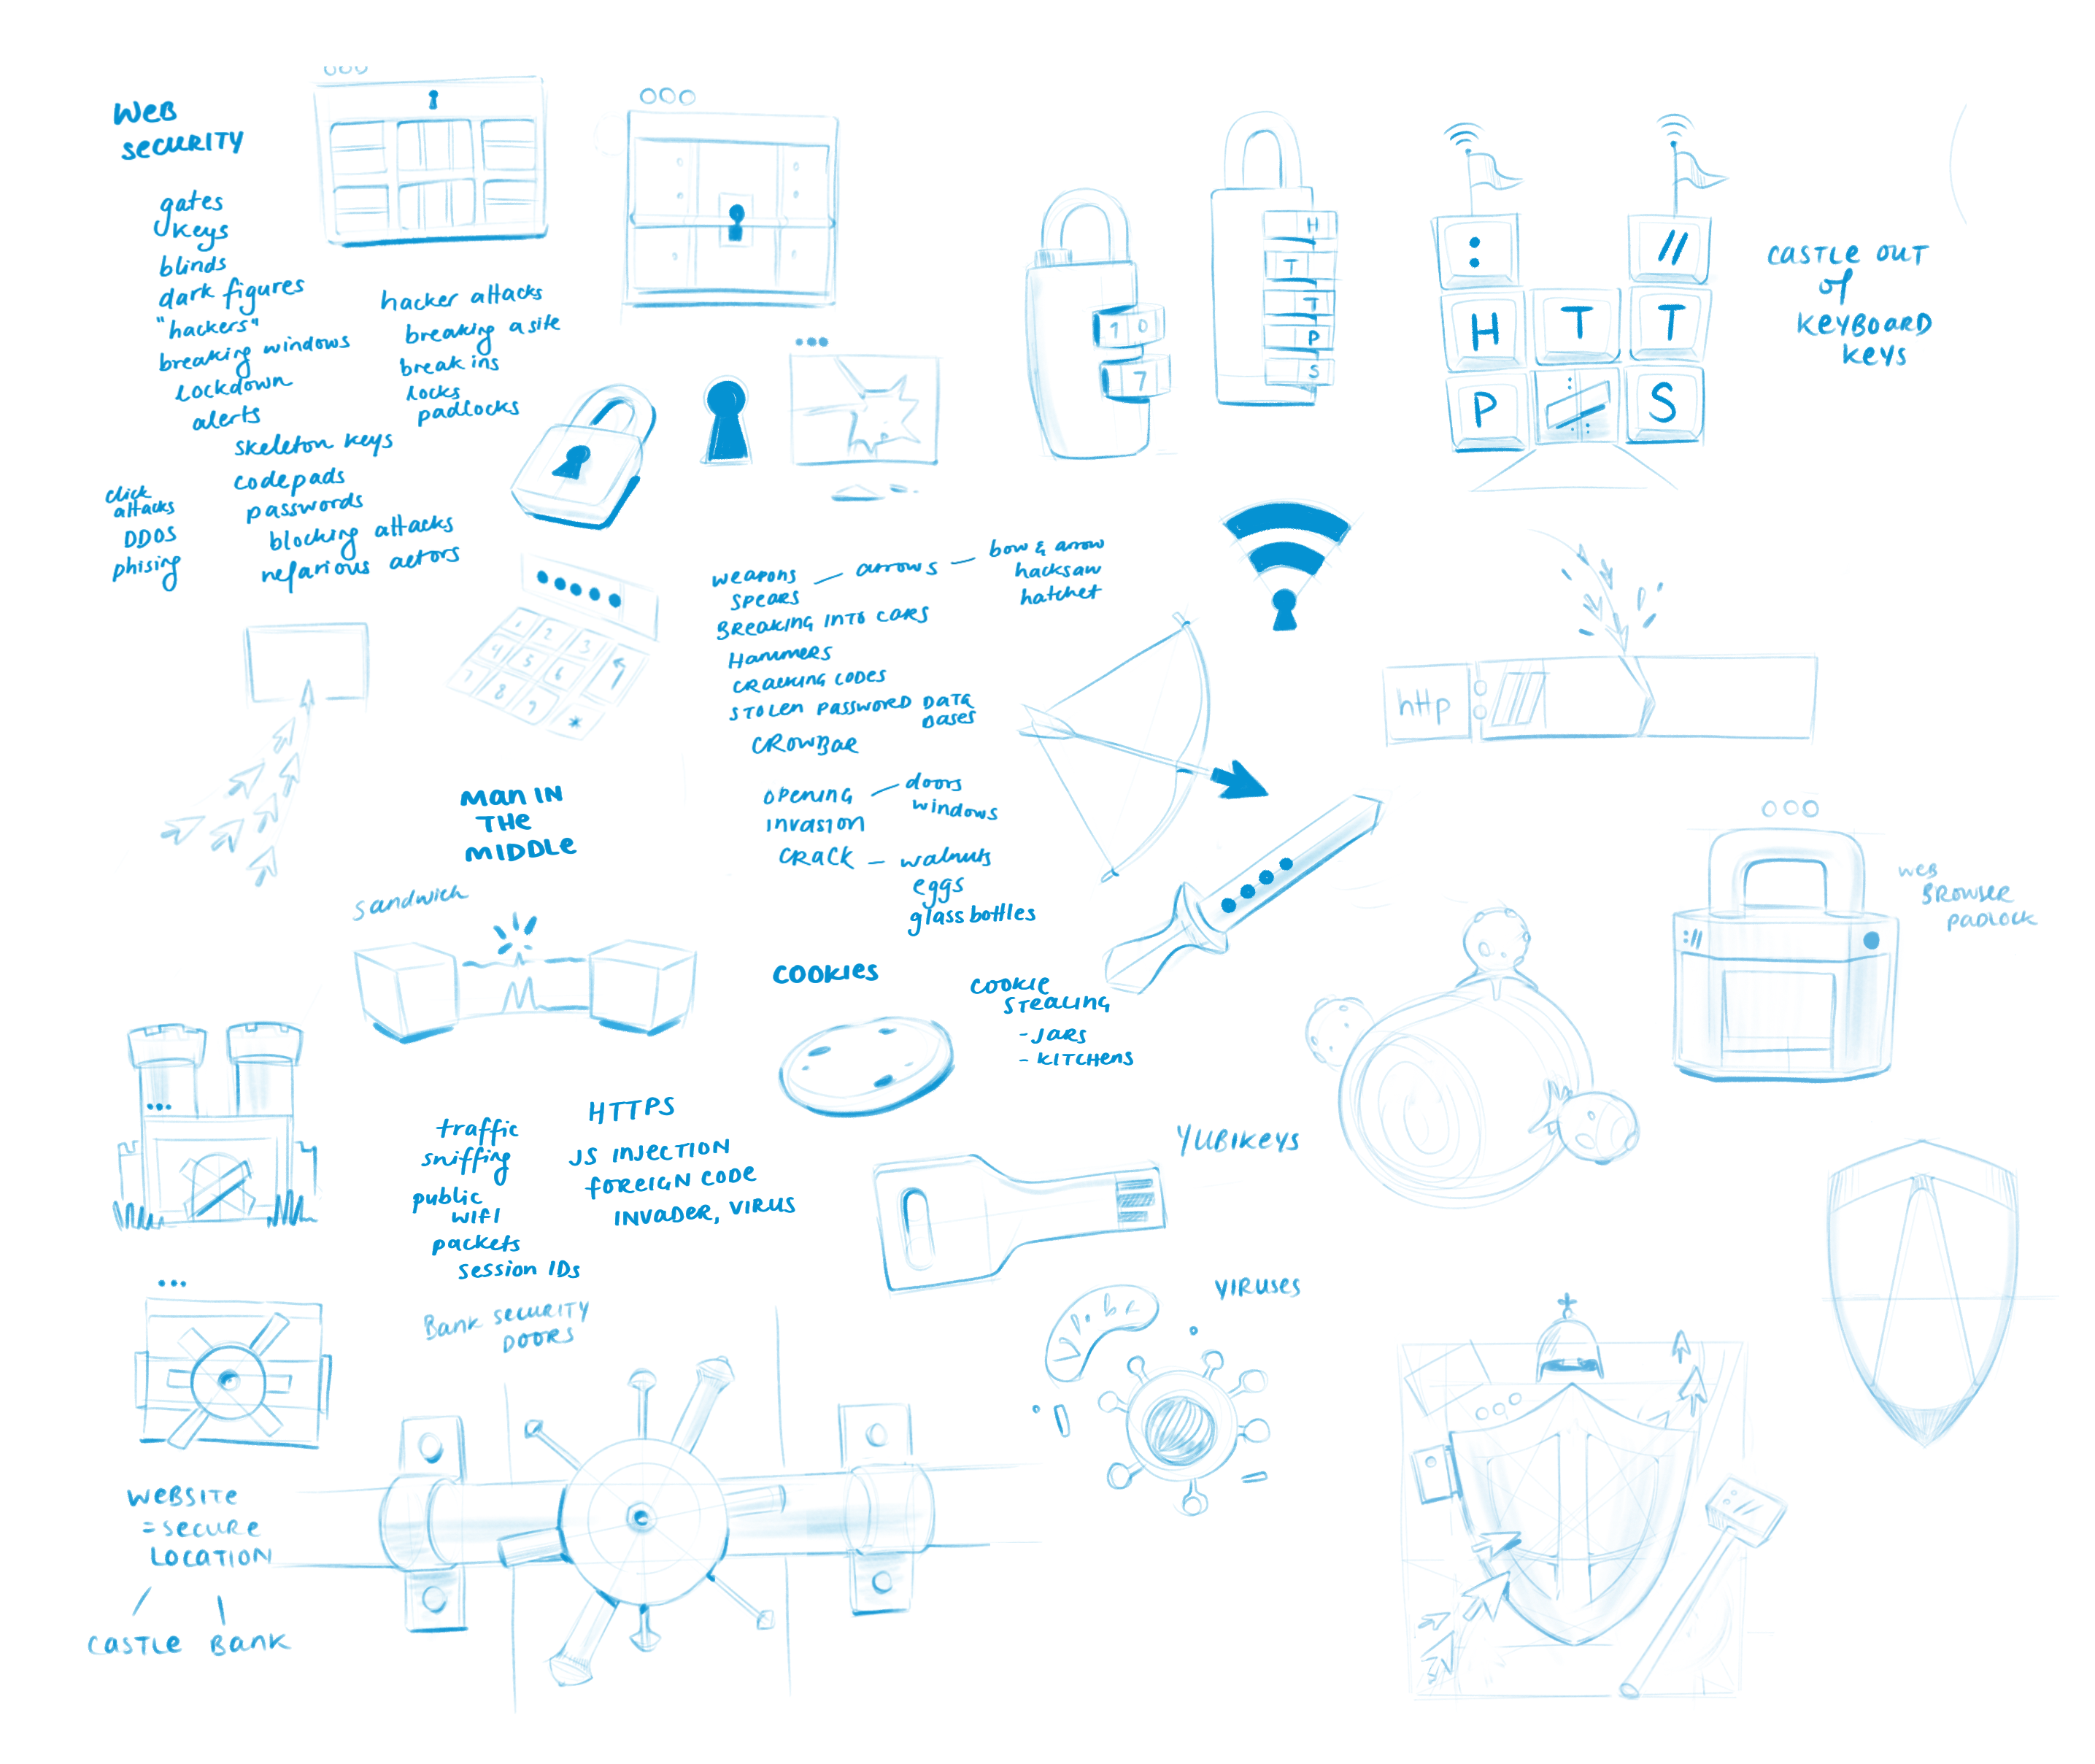 WEB
SECURITY
gates
keys
blinds
dark figures
"hackers"
breaking windows
lockdown
alerts
skeleton keys
codepads
passwords
blocking attacks
nefarious actors
click
attacks
DDOS
phising
hacker attacks
breaking a site
break ins
locks
padlocks
1 0
7
H
T
T
P
S
: //
H T T
P S
CASTLE OUT
of
KEYBOARD
KEYS
1 2 3
4 5 6
7 8 9
*
weapons — arrows — bow & arrow
spears
hacksaw
hatchet
BREAKING INTO CARS
Hammers
CRACKING CODES
STOLEN PASSWORD DATA
BASES
CROWBAR
OPENING — doors
windows
INVASION
CRACK — walnuts
eggs
glass bottles
http
MAN IN
THE
MIDDLE
sandwich
COOKIES
COOKIE
STEALING
- JARS
- KITCHENS
://
WEB
BROWSER
PADLOCK
traffic
sniffing
public
wifi
packets
session IDs
HTTPS
JS INJECTION
FOREIGN CODE
INVADER, VIRUS
YUBIKEYS
VIRUSES
BANK SECURITY
DOORS
WEBSITE
= SECURE
LOCATION
CASTLE BANK